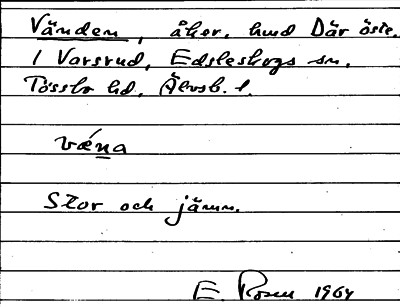 Vänden, åker, hmd Där öste.
1 Varsrud, Edsleskogs sn.
Tössbo hd. Älvsb. l.
væna
Stor och jämn.
E. Rosen 1964